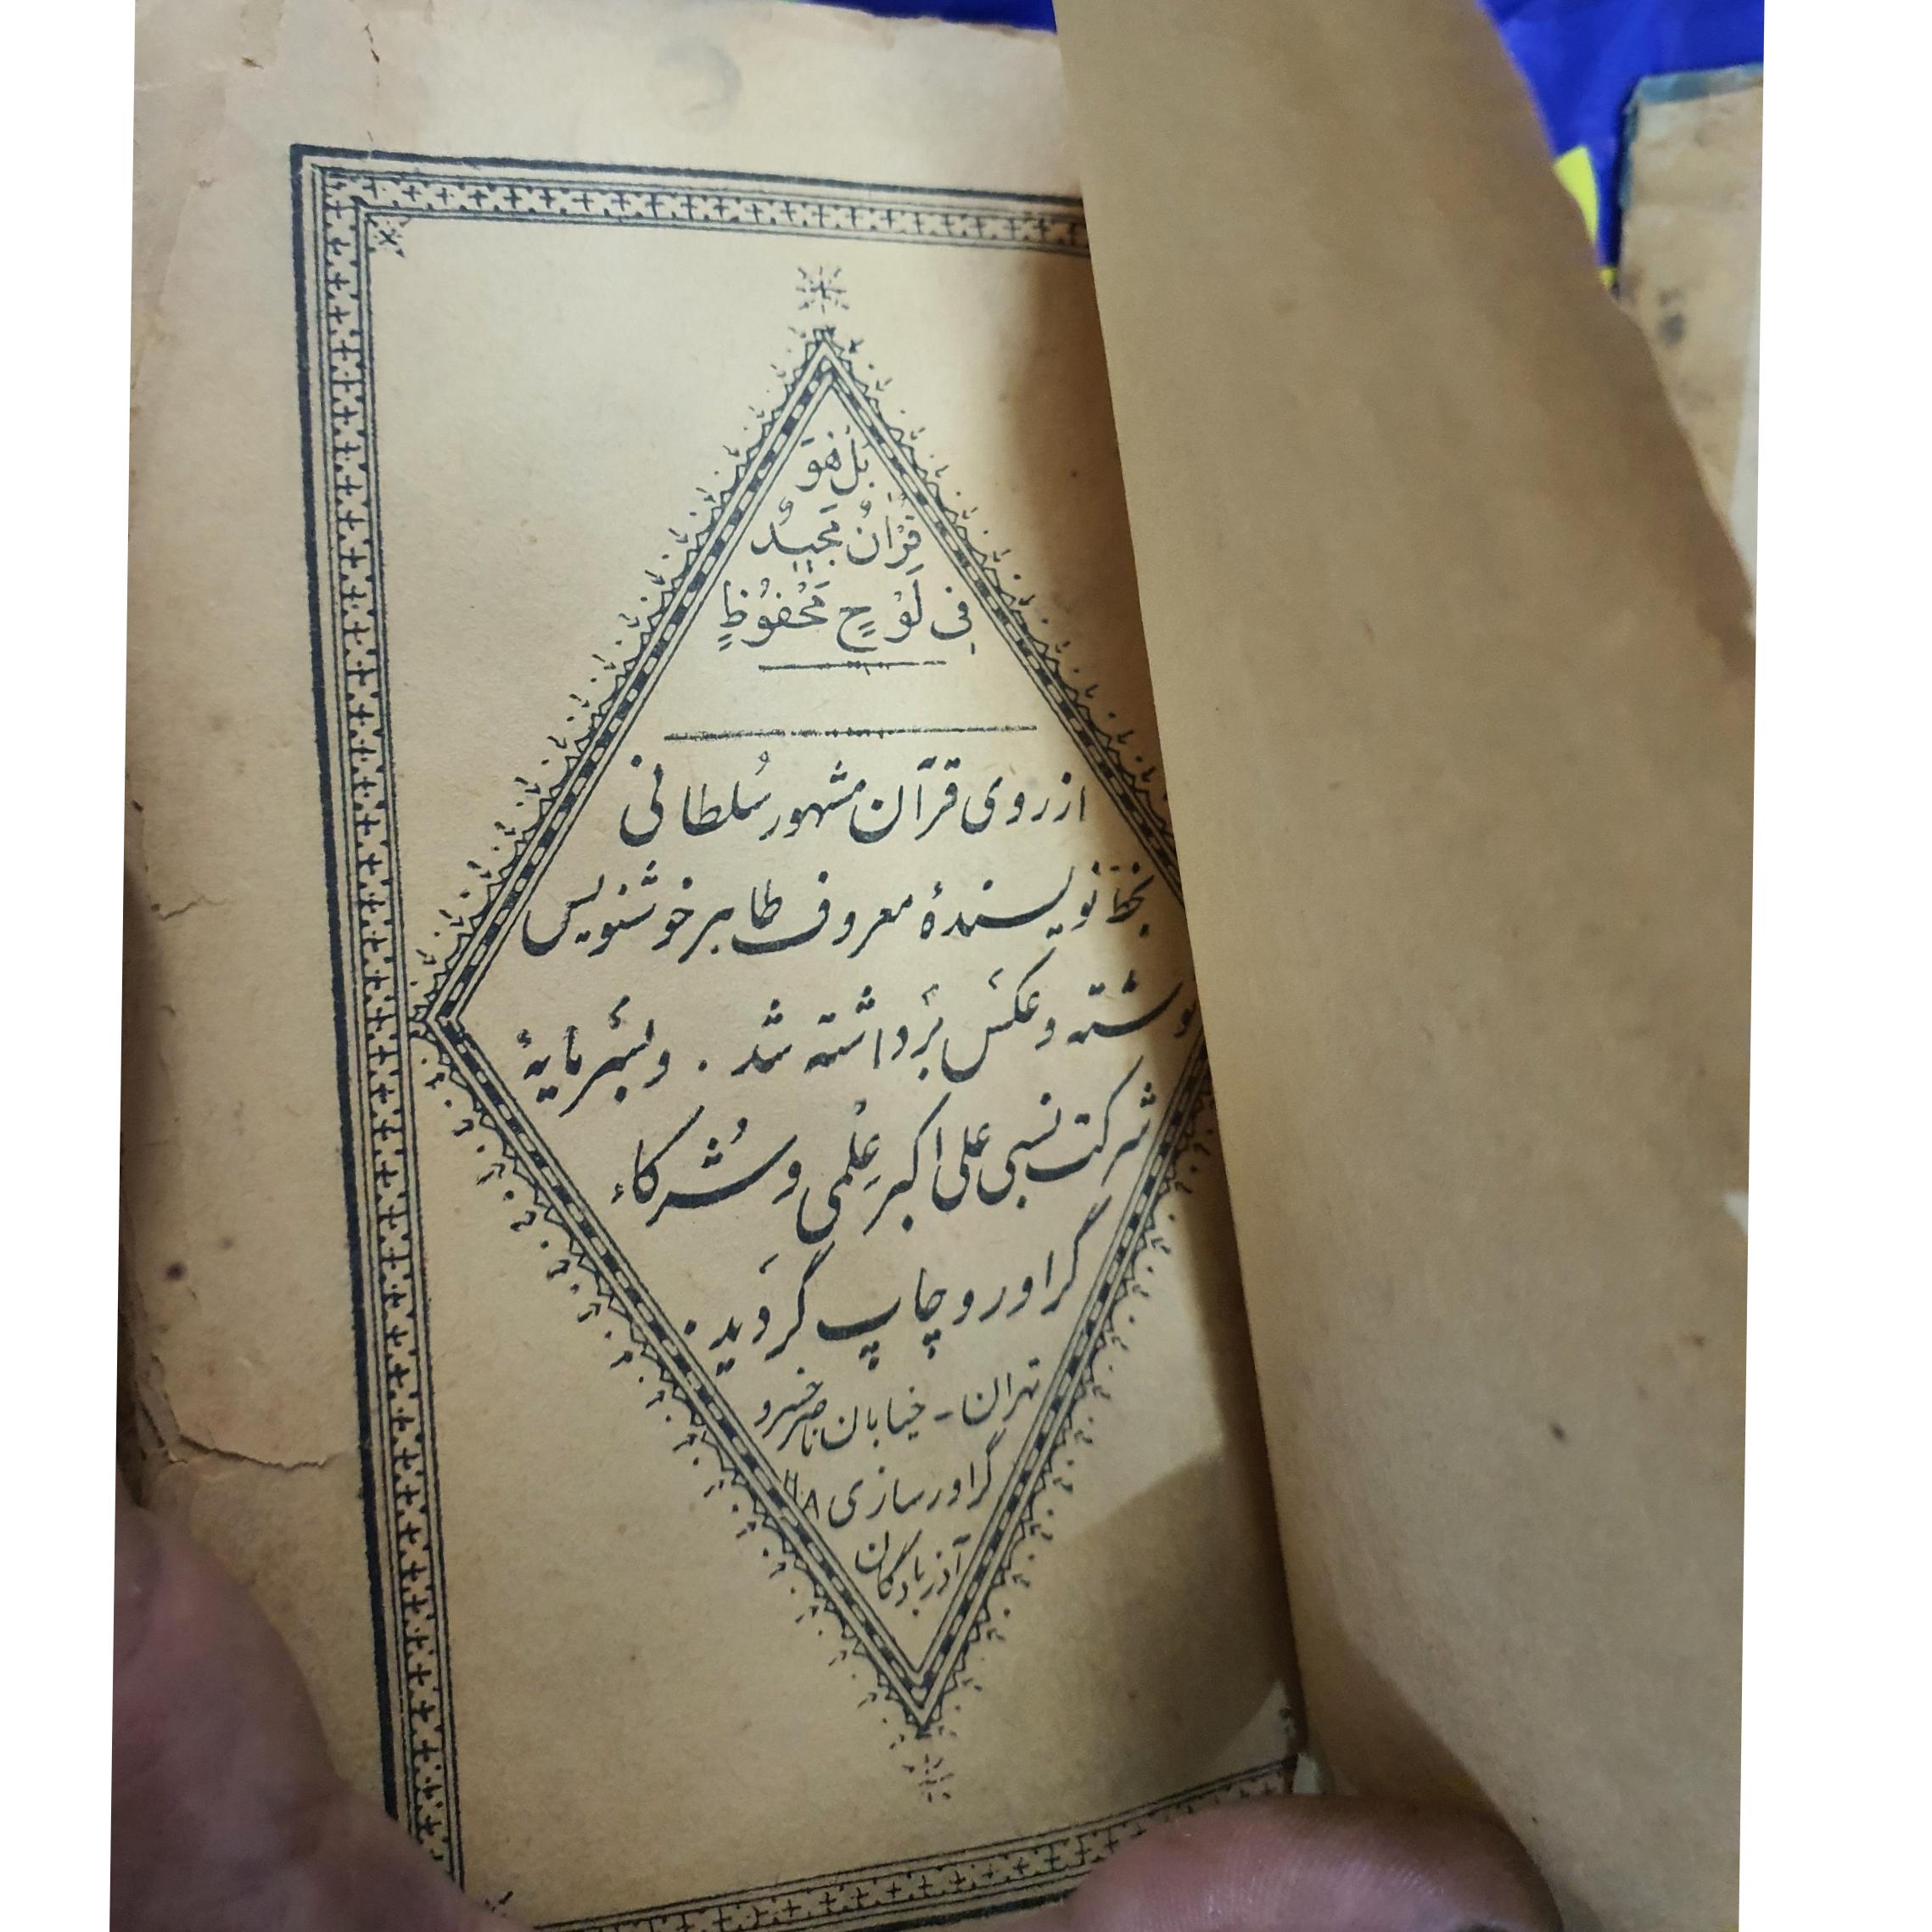 بَلْ هُوَ
قُرْانٌ مَجيدٌ
فِى لَوْحٍ مَحْفُوظٍ
از روی قرآن مشهور سُلطانی
بخط نویسندهٔ معروف طاهر خوشنویس
نوشته و عکس برداشته شد . و بسرمایهٔ
شرکت نسبی علی اکبر عِلْمی و شُرکاء
گراور و چاپ گردید .
تهران - خیابان ناصر خسرو
گراورسازی
آذربادگان